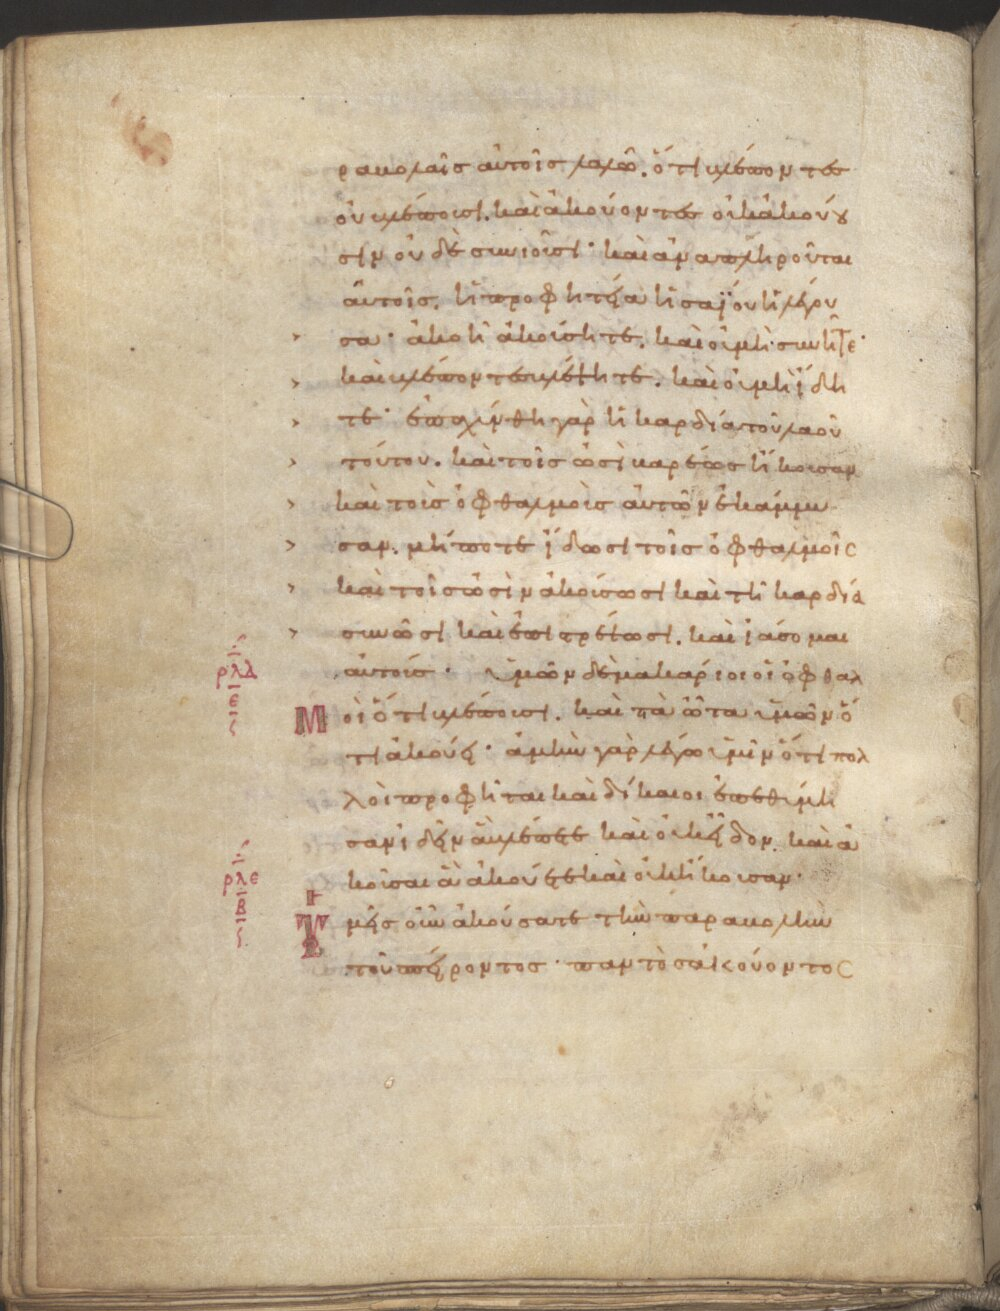 ραβολαῖς αὐτοῖς λαλῶ. ὅτι βλέποντες
οὐ βλέπουσι. καὶ ἀκούοντες οὐκ ἀκούου
σιν οὐδὲ συνιοῦσι· καὶ ἀναπληροῦται
αὐτοῖς. ἡ προφητεία ἡσαΐου ἡ λέγου
σα· ἀκοῆ ἀκούσητε. καὶ οὐ μὴ συνῆτε·
καὶ βλέποντες βλέψητε. καὶ οὐ μὴ ἴδη
τε· ἐπαχύνθη γὰρ ἡ καρδία τοῦ λαοῦ
τούτου. καὶ τοῖς ὠσὶ βαρέως ἤκουσαν
καὶ τοὺς ὀφθαλμοὺς αὐτῶν ἐκάμμυ
σαν. μήποτε ἴδωσι τοῖς ὀφθαλμοῖς
καὶ τοῖς ὠσὶν ἀκούσωσι καὶ τῆ καρδία
συνῶσι καὶ ἐπιστρέψωσι. καὶ ἰάσομαι
αὐτούς· ὑμῶν δὲ μακάριοι οἱ ὀφθαλ
ρλδ
ε
Μοὶ ὅτι βλέπουσι. καὶ τὰ ὦτα ὑμῶν ὅ
τι ἀκούει· ἀμὴν γὰρ λέγω ὑμῖν ὅτι πολ
λοὶ προφῆται καὶ δίκαιοι ἐπεθύμη
σαν ἰδεῖν ἃ βλέπετε καὶ οὐκ εἶδον. καὶ ἀ
κοῦσαι ἃ ἀκούετε καὶ οὐκ ἤκουσαν·
ρλε
β
Ὑμεῖς οὖν ἀκούσατε τὴν παραβολὴν
τοῦ σπείροντος· παντὸς ἀκούοντος